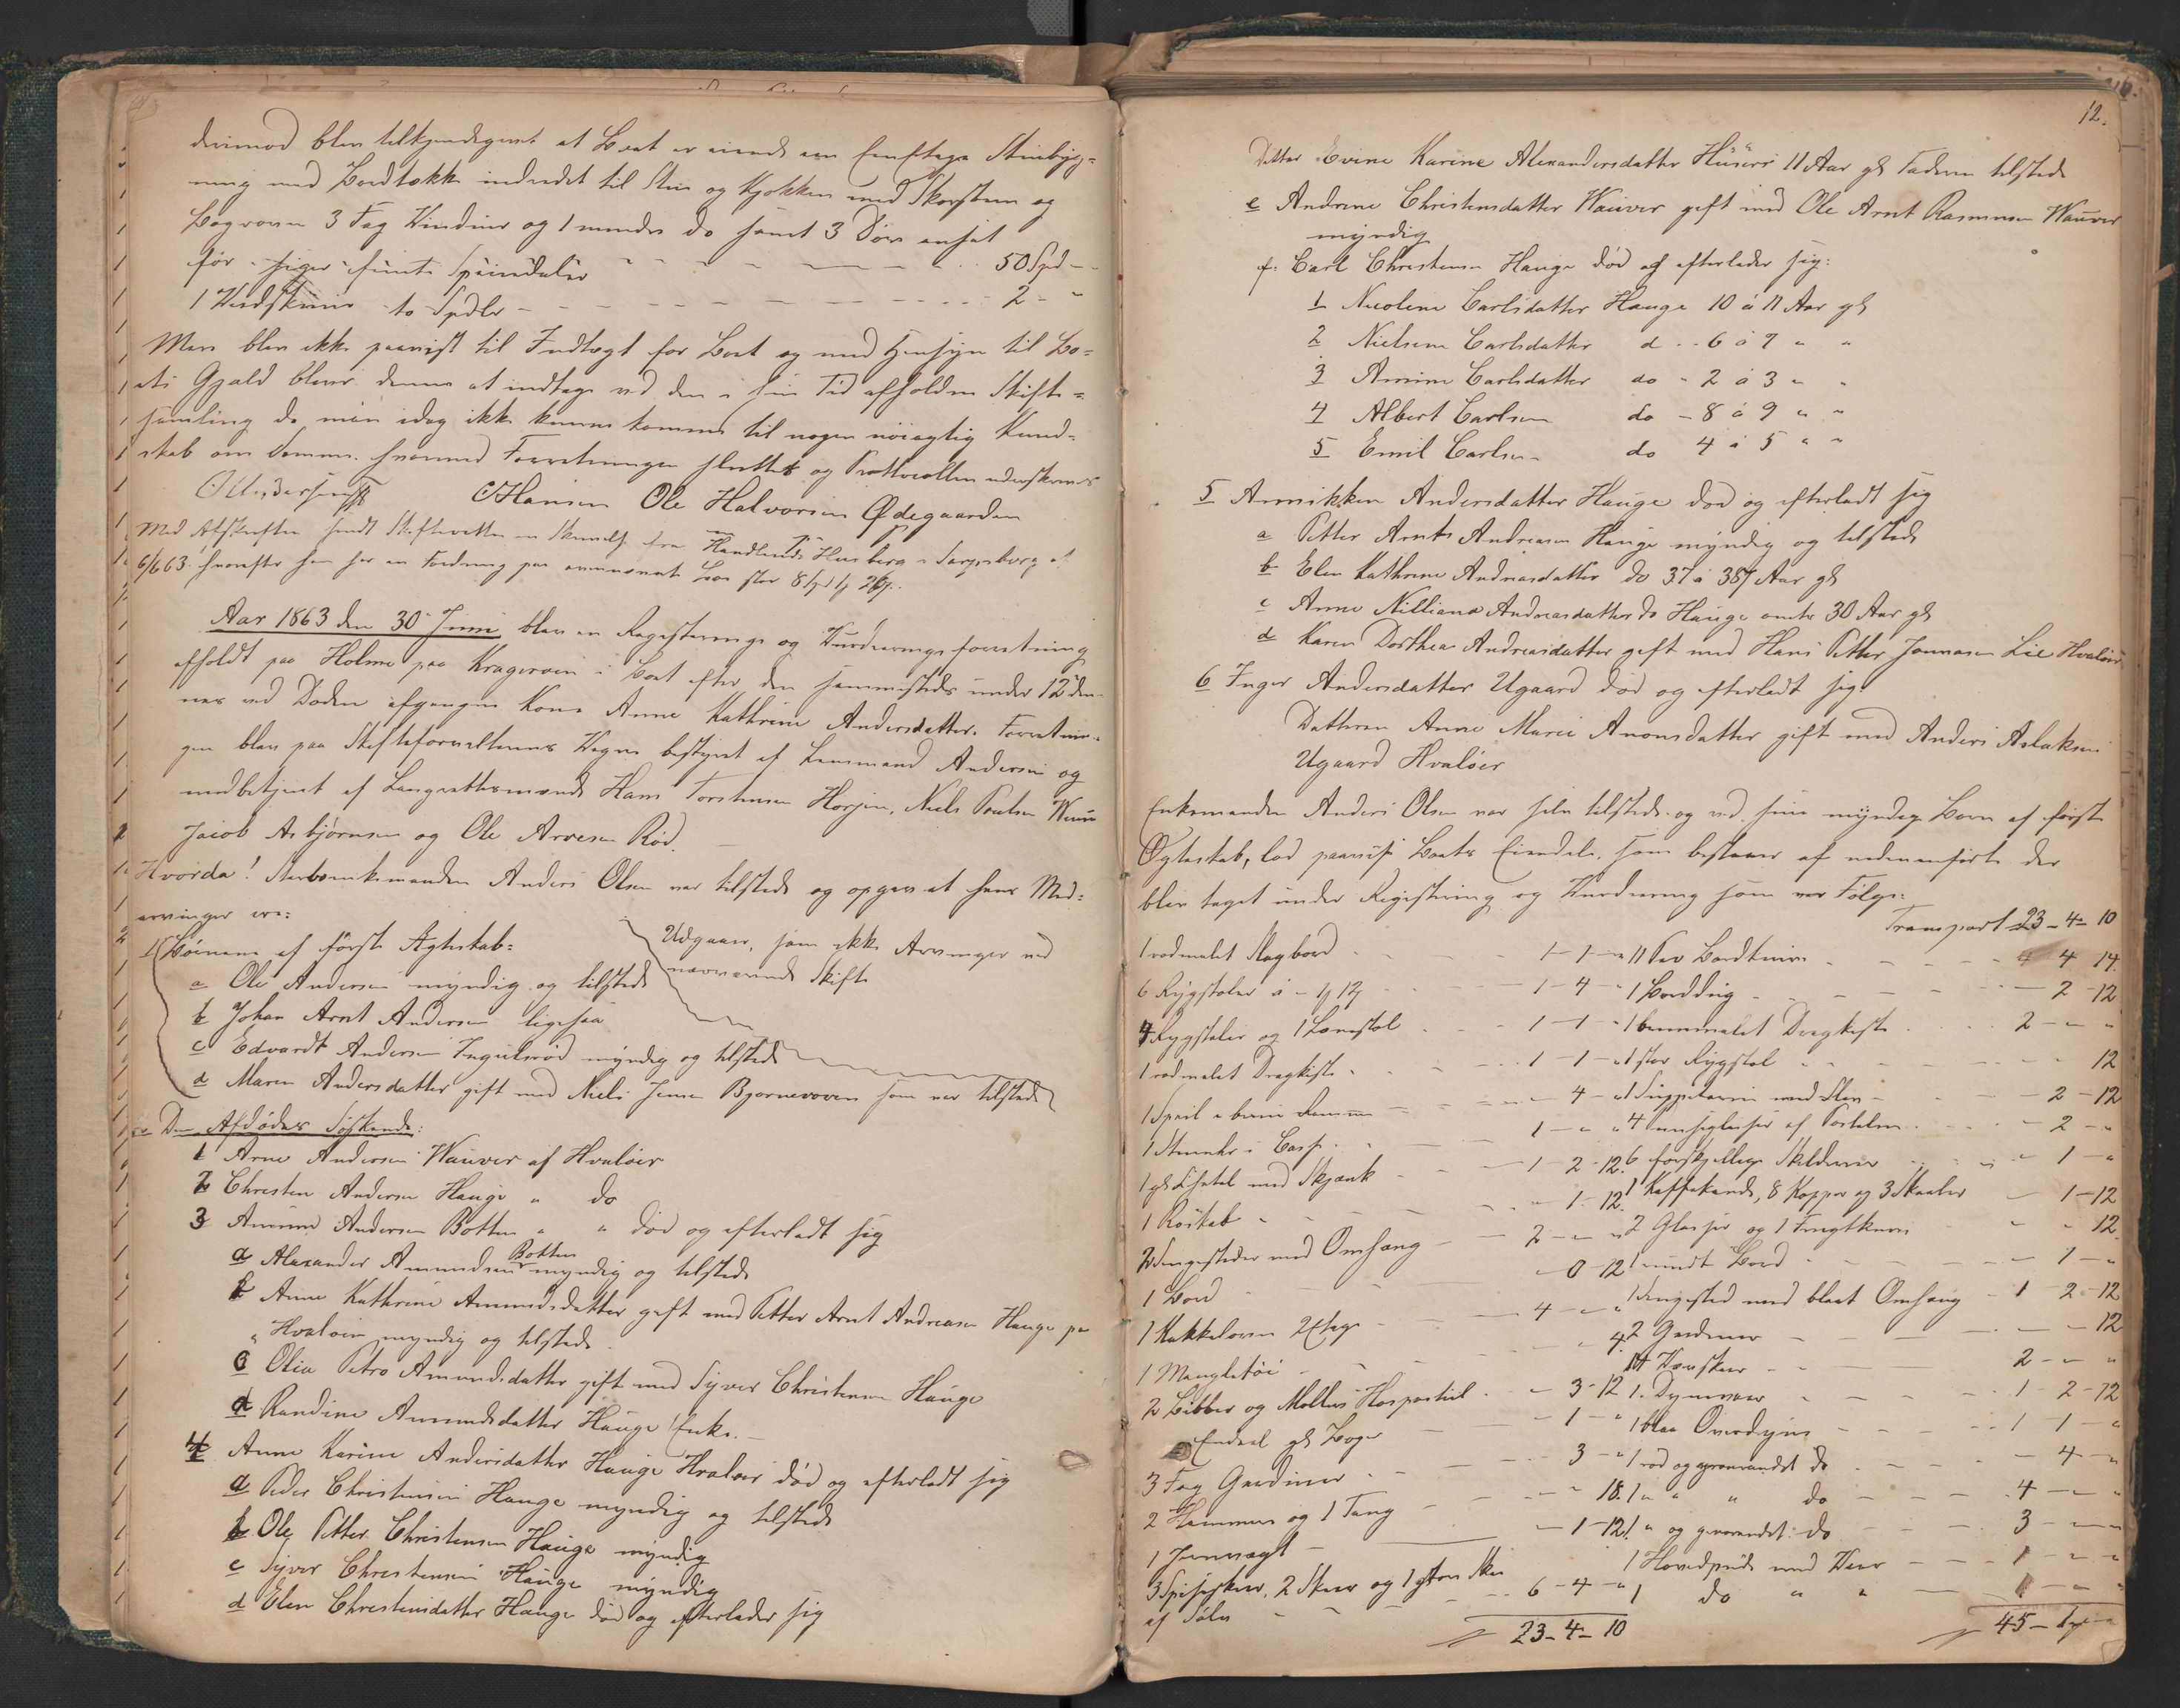 derimod blev tilkjendegivet at Boet er eiende en Eenetages Stuebyg-
ning med Bordtække indredet til Stue og Kjøkken med Skorsteen og
Bagerovn 3 Fag Vinduer og 1 mindre do samt 3 Døre ansat
for siger Spesiedaler - - - 50 Spd -
1 to Spdlr - - - 2 - "
Men blev ikke paaviist til Indtægt for Boet og med Hensyn til Bo-
ets Gjæld bliver denne at indtage ved den i sin Tid afholdene Skifte-
samling da man idag ikke kunne komme til nogen nøiagtig Kund-
skab om Samme. hvormed Forretningen sluttet og Protocollen underskreves
CHansen Ole Halvorsen Ødegaarden
Med Afskriften sendt Skifteretten en Skrivelse fra Handlende i Sarpsborg af
6/6 63. hvorefter han har en Fordring paa ommeldte Boe stor 8 Spd
Aar 1863 den 30 Juni blev en Registrerings og Vurderingsforretning
afholdt paa Holme paa Kragerøen i Boet efter den sammesteds under 12 den-
nes ved Døden afgangne Kone Anne Kathrine Andersdatter. Forretnin-
gen blev paa Skifteforvalterens Vegne bestyret af Lensmand Andersen og
medbetjent af Laugrettesmænd Hans Torstensen Horgen, Niels Poulsen
Jacob Asbjørnsen og Ole Arvesen Rød.
Hvorda! Sterboenkemanden Anders Olsen var tilstede og opgav at hans Med-
arvinger ere:
1 Børnene af første Ægteskab:
Udgaaer, som ikke Arvinger ved
nærværende Skifte
a Ole Andersen myndig og tilstede
b Johan Arnt Andersen ligesaa
c Edvardt Andersen Ingulsrød myndig og tilstede
d Maren Andersdatter gift med Niels Jensen Bjørnevoven som var tilstede
Den Afdødes Søskende:
1 Arne Andersen Wauver af Hvaløer
2 Christen Andersen Hauge " do
3 Amund Andersen Botten " " død og efterladt sig
a Alexander Amundsen Botten myndig og tilstede
b Anne Kathrine Amundsdatter gift med Petter Arnt Andreasen Hauge paa
" Hvaløer myndig og tilstede.
c Olia Petro Amundsdatter gift med Syver Christensen Hauge
d Randine Amundsdatter Hauge Enke. -
4 Anne Karine Andersdatter Hauge Hvaløer død og efterladt sig
a Peder Christensen Hauge myndig og tilstede
b Ole Petter Christensen Hauge myndig
c Syver Christensen Hauge myndig
d Elen Christensdatter Hauge død og efterlader sig
12.
Datter Evine Karine Alexandersdatter Huser 11 Aar gl Faderen tilstede
e Andrine Christensdatter Wauver gift med Ole Arnt Rasmusen Wauver
myndig
f. Carl Christensen Hauge død og efterlader sig:
1 Nicoline Carlsdatter Hauge 10 á 11 Aar gl
2 Nielsine Carlsdatter d - 6 á 7 " "
3 Amine Carlsdatter do - 2 á 3 " "
4 Albert Carlsen do - 8 á 9 " "
5 Emil Carlsen do 4 á 5 " "
5 Annikken Andersdatter Hauge død og efterladt sig
a Petter Arnt Andreasen Hauge myndig og tilstede
b Elen Kathrine Andreasdatter do 37 á 38 Aar gl
c Anne Nilliane Andreasdatter do Hauge omtr 30 Aar gl
d Karen Dorthea Andreasdatter gift med Hans Petter Jonnasen Lie Hvaløer
6 Inger Andersdatter Ugaard død og efterladt sig:
Datteren Anne Marie Anonsdatter gift med Anders Aslaksen
Ugaard Hvaløer
Enkemanden Anders Olsen var selv tilstede og ved sine myndige Børn af første
Ægteskab, lod paavise Boets Eiendele, som bestaaer af nedenanførte der
blev taget under Registrering og Vurdering som Følger:
Transport 23 - 4 - 10
1 rødmalet Slagbord - - 1 - 1 - "
11 Par Bordknive - - 4 14.
6 Rygstoler á - - 1 - 4 - "
1 Borddug - - 2 - 12
4 Rygstoler og 1 Lænestol - - 1 - 1 - "
1 brunmalet Dragkiste - - 2 - " "
1 rødmalet Dragkiste - - 1 - 1 - "
1 stor Rygstol - - 12
1 Speil i bruun Ramme - - 4 - "
1 Suppeterin med Skee - - 2 - 12
1 Stueuhr i Casse - - 1 - " "
4 af Porcelæn - - 2 - "
1 gl Schatol med Skjænk - - 1 - 2 - 12.
6 forskjellige Skilderier - - 1 - "
1 Roskab - - 1 - 12.
1 Kaffekande, 8 Kopper og 3 Skaaler - 1 - 12
2 Sengesteder med Omhæng - - 2 - " "
2 Glasser og 1 Frugtkurv - - 12.
1 Bord - - 0 - 12
1 rundt Bord - - 1 - "
1 Kakkelovn 2 Etage - - 4 - " "
1 Sengested med blaat Omhæng - 1 - 2 - 12
1 Mangletøi - - 4.
2 Gardiner - - 12
2 Bibler og Møllers Huspostil - - 3 - 12
14 - - 2 - " "
Endeel gl Bøger - - 1 - "
1. Dynevaar - - 1 - 2 - 12
3 Fag Gardiner - - 3 - "
1 blaa Overdyne - - 1 - 1 - "
2 Hammer og 1 Tang - - 18.
1 rød og grønrandet do - - 4 - "
1 Jernvægt - - 1 - 12
1 " " " do - - 4 - "
3 Spiseskeer, 2 Skeer og 1 stor Skee
1 " og grørandet do - - 3 - "
af Sølv - - 6 - 4 - "
1 Hovedpude med Vaar - - 1 - "
1 do " " - 1 - "
23 - 4 - 10
45 -